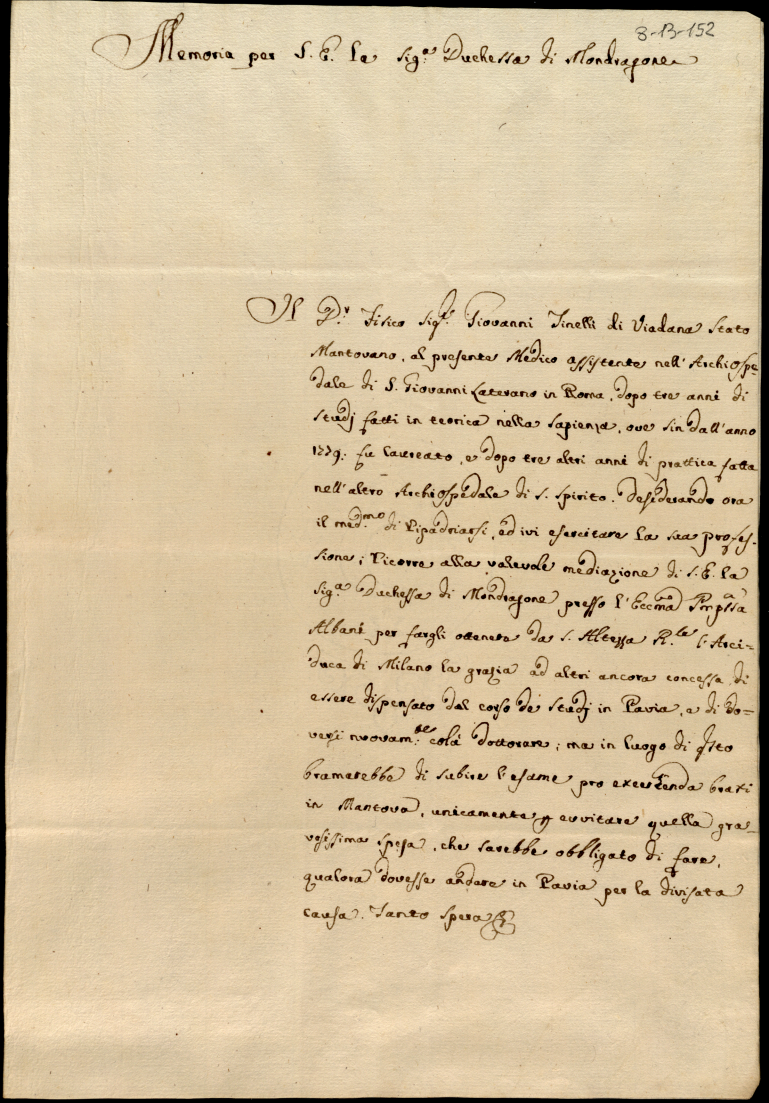 8-13-152
Memoria per S. E. la Sig.ª Duchessa di Mondragone
Il D.r Fisico Sig.r Giovanni Tinelli di Viadana Stato
Mantovano, al presente Medico assistente nell'Archiospe
dale di S. Giovanni Laterano in Roma, dopo tre anni di
studj fatti in teorica nella Sapienza, ove sin dall'anno
1779: fu laureato, e dopo tre altri anni di prattica fatta
nell'altro Archiospedale di S. Spirito. Desiderando ora
il med.mo di ripadriarsi, ed ivi esercitare la sua profes-
sione; Ricorre alla valevole mediazione di S. E. la
Sig.ª Duchessa di Mondragone presso l'Eccma Pnpssa
Albani per fargli ottenere da S. Altezza R.le l'Arci=
duca di Milano la grazia ad altri ancora concessa, di
essere dispensato dal corso de Studj in Pavia, e di do=
versi nuovam.te colà dottorare; ma in luogo di qsto
bramarebbe di subire l'esame pro exercenda praxi
in Mantova, unicamente p evvitare quella gra_
vosissima spesa, che sarebbe obbligato di fare,
qualora dovesse andare in Pavia per la divisata
causa. Tanto Spera